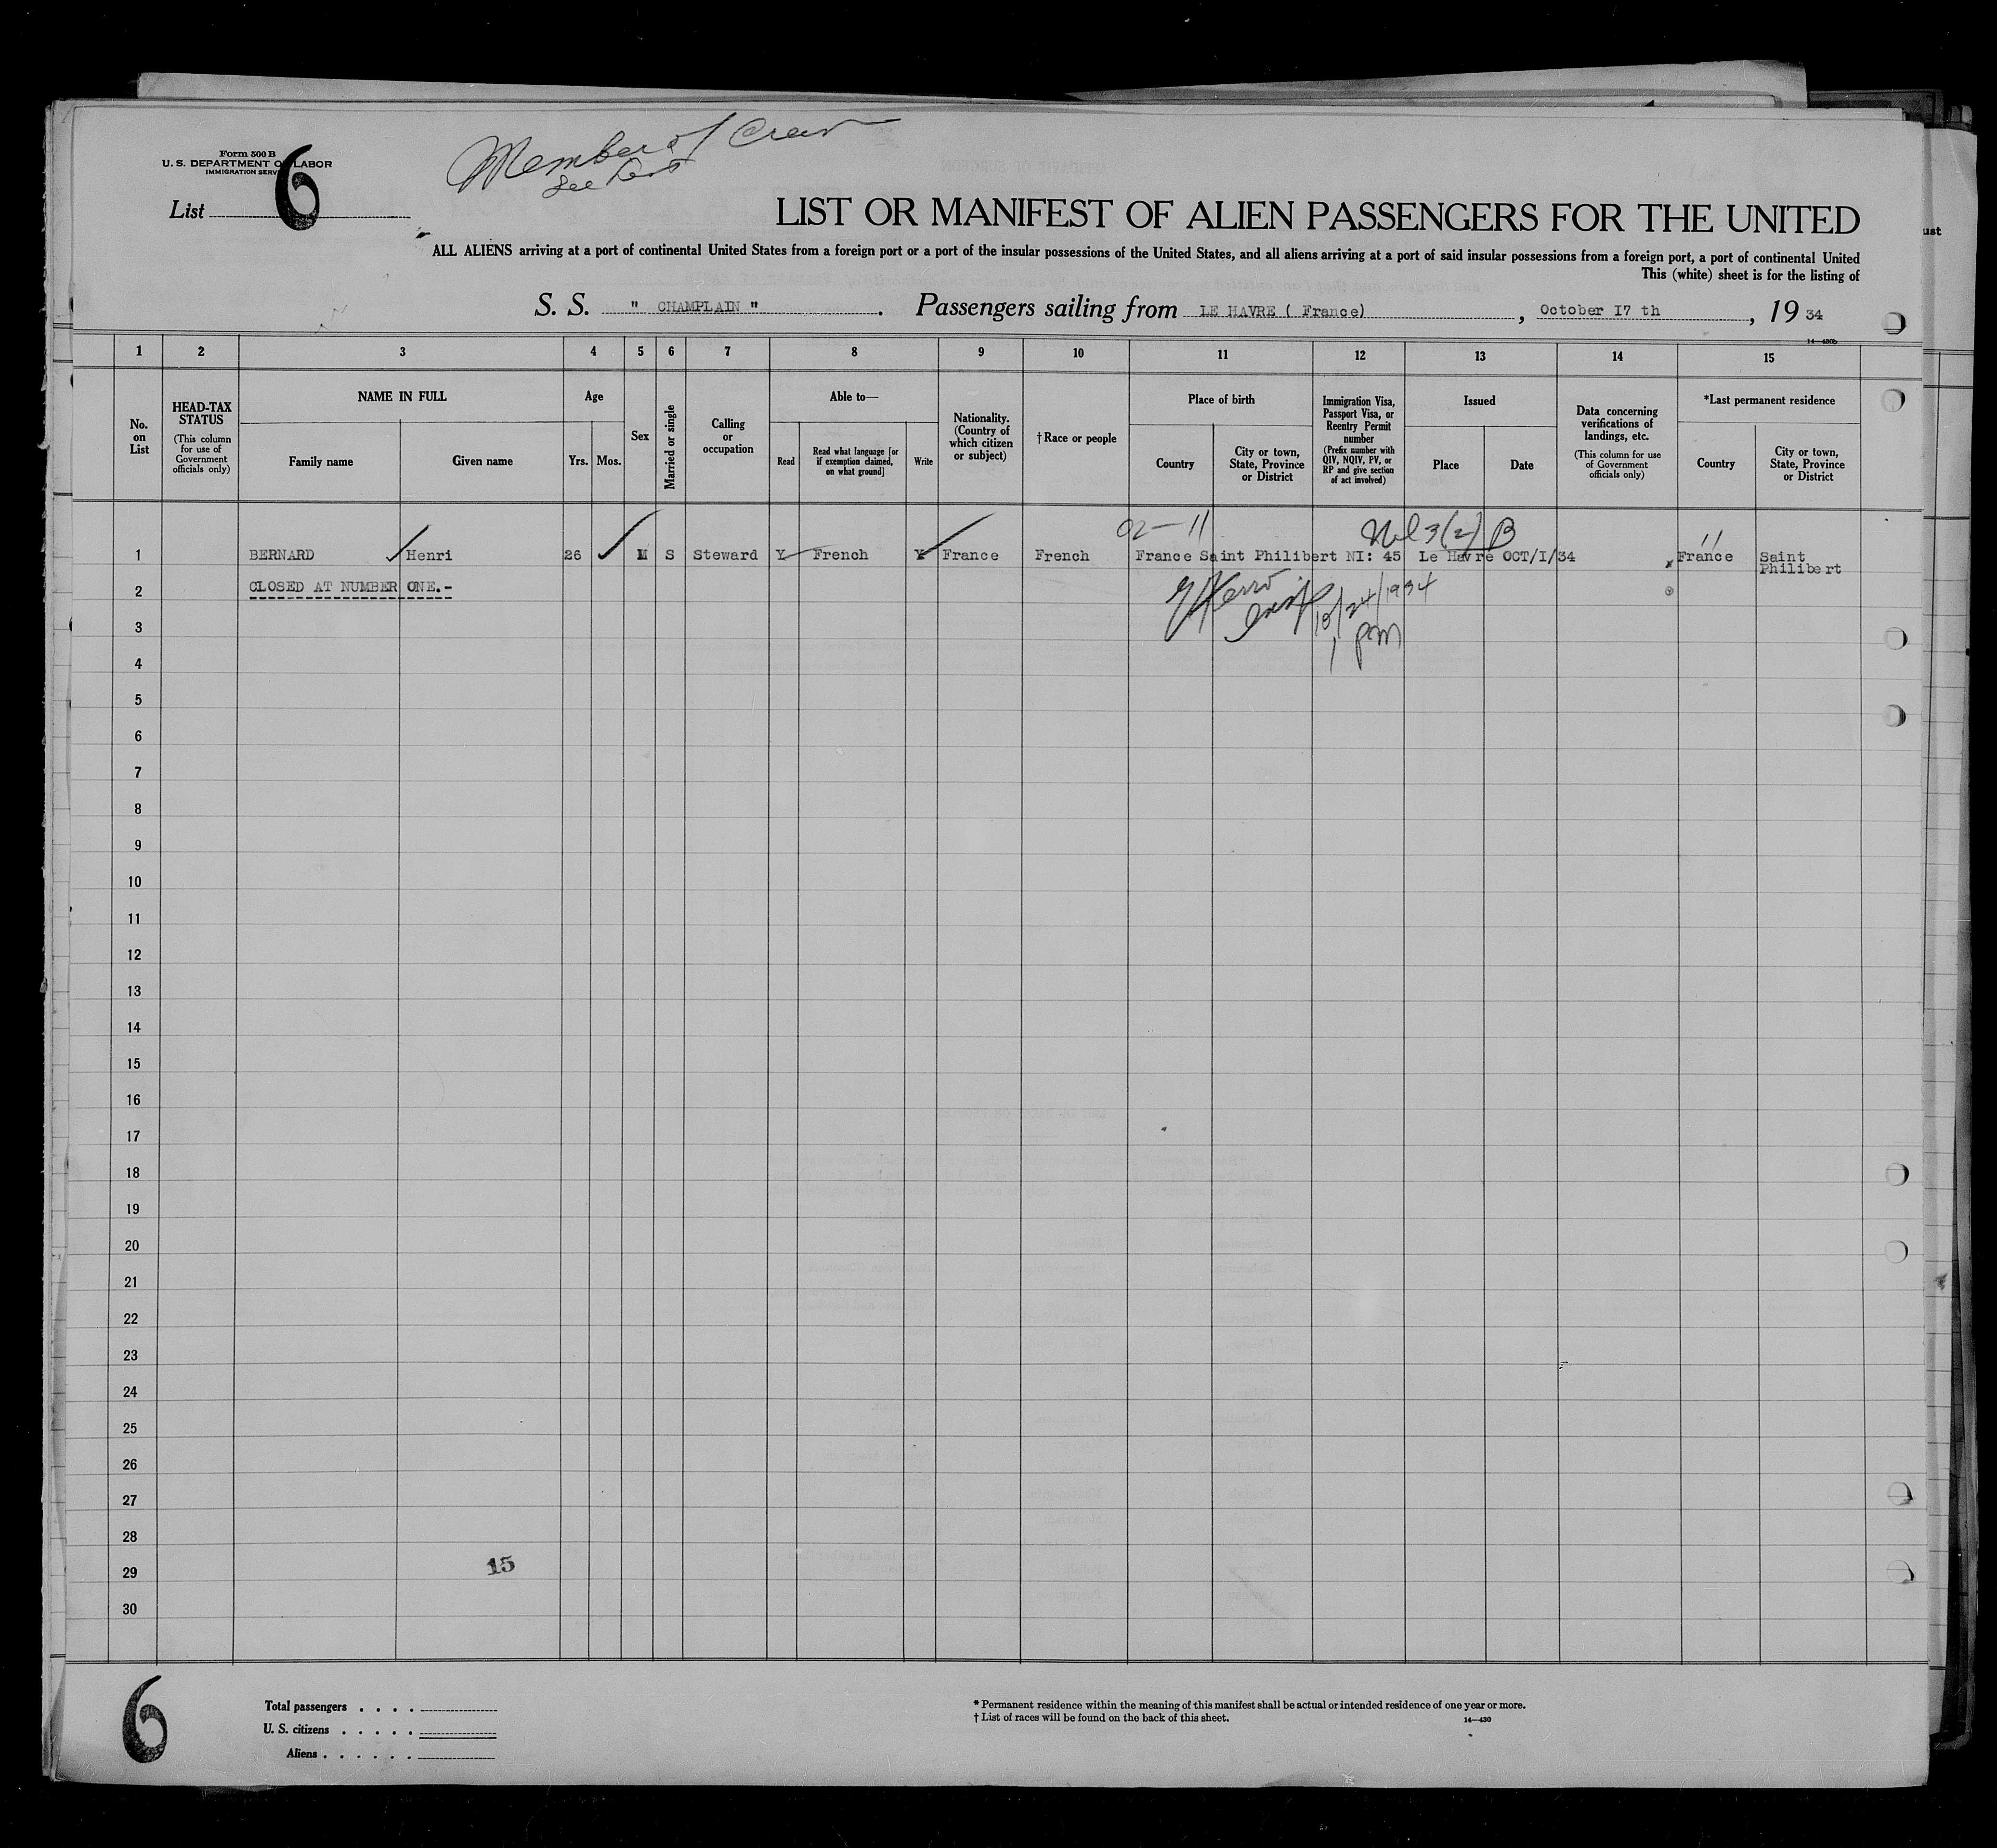 Form 500 B
U. S. DEPARTMENT OF LABOR
IMMIGRATION SERV
List 6
Member of Crew
See
LIST OR MANIFEST OF ALIEN PASSENGERS FOR THE UNITED
ALL ALIENS arriving at a port of continental United States from a foreign port or a port of the insular possessions of the United States, and all aliens arriving at a port of said insular possessions from a foreign port, a port of continental United
This (white) sheet is for the listing of
S. S. " CHAMPLAIN ". Passengers sailing from LE HAVRE ( France), October 17 th, 19 34
14—430b
1 2 3 4 5 6 7 8 9 10 11 12 13 14 15
No. on List
HEAD-TAX STATUS (This column for use of Government officials only)
NAME IN FULL
Family name Given name
Age
Yrs. Mos.
Sex
Married or single
Calling or occupation
Able to—
Read
Read what language [or if exemption claimed, on what ground]
Write
Nationality. (Country of which citizen or subject)
†Race or people
Place of birth
Country
City or town, State, Province or District
Immigration Visa, Passport Visa, or Reentry Permit number (Prefix number with QIV, NQIV, PV, or RP and give section of act involved)
Issued
Place Date
Data concerning verifications of landings, etc. (This column for use of Government officials only)
*Last permanent residence
Country
City or town, State, Province or District
3(2) B
1 BERNARD Henri 26 M S Steward Y French Y France French France Saint Philibert NI: 45 Le Havre OCT/I/34 France Saint Philibert
2 CLOSED AT NUMBER ONE.-
10/24/1934
pm
3
4
5
6
7
8
9
10
11
12
13
14
15
16
17
18
19
20
21
22
23
24
25
26
27
28
15
29
30
6
Total passengers . . . .
U. S. citizens . . . . .
Aliens . . . . . .
* Permanent residence within the meaning of this manifest shall be actual or intended residence of one year or more.
† List of races will be found on the back of this sheet.
14—430
ust